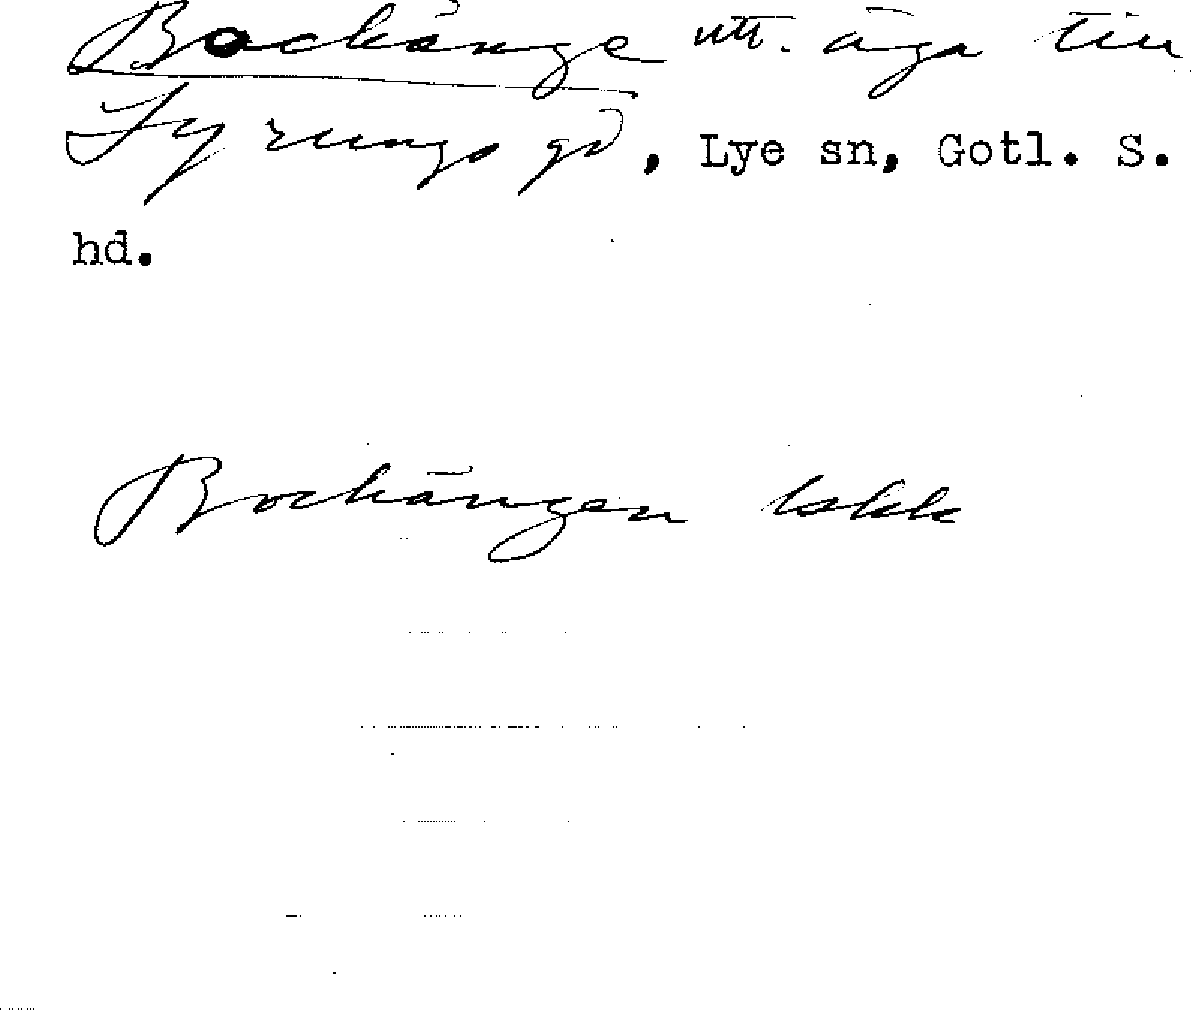 Bockänge utt. äga till
Fyrungs gd, Lye sn, Gotl. S.
hd.
Bockängen lskk